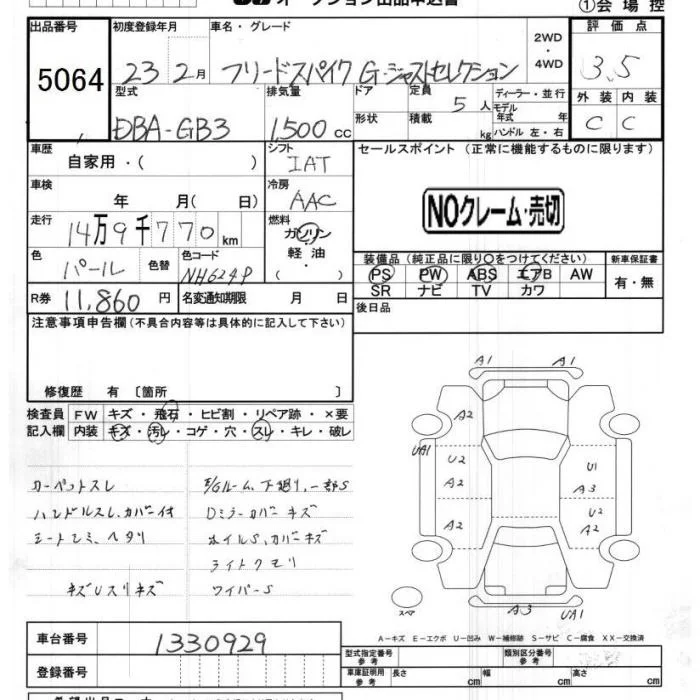 オークション出品申込書
①会場控
出品番号
5064
初度登録年月
23 2月
車名・グレード
フリードスパイク G・ジャストセレクション
2WD
・
4WD
評価点
3.5
外装 内装
C C
型式
DBA-GB3
排気量
1,500 cc
ドア
形状
定員
5人
積載
kg
ディーラー・並行
モデル
年式 年
ハンドル 左・右
車歴
自家用・( )
シフト
IAT
セールスポイント (正常に機能するものに限ります)
NOクレーム・売切
車検
年 月( 日)
冷房
AAC
走行
14万9千770km
燃料
ガソリン
軽油
・( )
色
パール
色替
色コード
NH624P
装備品 (純正品に限り○をつけてください)
PS PW ABS エアB AW
SR ナビ TV カワ
新車保証書
有・無
R券
11,860円
名変通知期限 月 日
後日品
注意事項申告欄 (不具合内容等は具体的に記入して下さい)
修復歴 有 〔箇所 〕
検査員
記入欄
FW キズ・飛石・ヒビ割・リペア跡・×要
内装 キズ・汚レ・コゲ・穴・スレ・キレ・破レ
カーペットスレ
ハンドルスレ、カバー付
シートシミ、ヘタリ
キズUスリキズ
E/Gルーム、下廻り、一部S
Dミラーカバーキズ
ホイルS、カバーキズ
ライトクモリ
ワイパーS
A1 A1
A2
UA1
U2 U1
A2 A3
U2
A2 A2
A3 UA1
スペア
A−キズ E−エクボ U−凹み W−補修跡 S−サビ C−腐食 XX−交換済
車台番号
1330929
登録番号
型式指定番号
参考
類別区分番号
参考
車庫証明用
参考
長さ cm
幅 cm
高さ cm